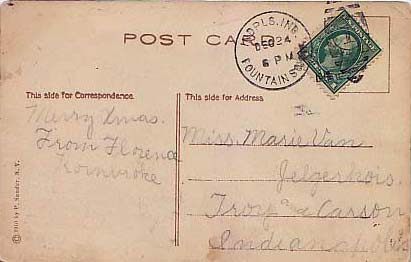 POST CARD
INDPLS. IND.
DEC 24
6 PM
FOUNTAIN SQ.
This side for Correspondence.
This side for Address
Merry Xmas.
From Florence
Miss. Marie Van
Jelgerhuis.
Troy and Carson
Indianapolis
© 1910 by P. Sander, N. Y.